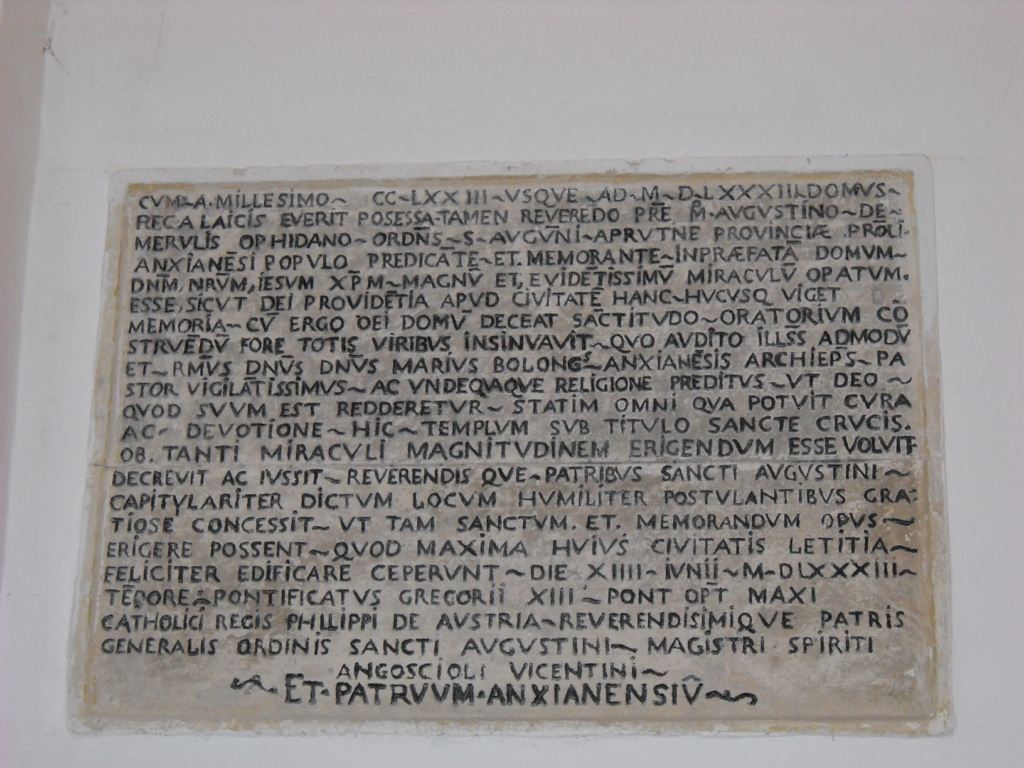 CVM~A·MILLESIMO~ CC~LXXIII~VSQVE~AD~M~D·LXXXIII·DOMVS~
REC A LAICIS EVERIT POSESSA·TAMEN REVEREDO PR̄E M̄·AVGVSTINO~DE~
MERVLIS OPHIDANO~ORDN̄S~S~AVGV̄NI~APRVTNE PROVINCIÆ·PROLI·
ANXIANĒSI POPVLO PREDICATE~ET·MEMORANTE~INPRÆFATĀ DOMVM~
DN̄M, NRV̄M, IESVM XP̄M~MAGNV̄ ET, EVIDĒTISSIMV̄ MIRACVLV̄ OPATVM·
ESSE, SICVT DEI PROVIDĒTIA APVD CIVITATĒ HANC~HVCVSQ VIGET
MEMORIA~CV̄ ERGO DEI DOMV̄ DECEAT SĀCTITVDO~ORATORIVM CŌ
STRVĒDV̄ FORE TOTIS VIRIBVS INSINVAVIT~QVO AVDITO ILLSS̄ ADMODV̄
ET~RMV̄S DNV̄S DNV̄S MARIVS BOLONGS~ANXIANĒSIS ARCHIEPS̄~PA
STOR VIGILĀTISSIMVS~AC VNDEQVAQVE RELIGIONE PREDITVS~VT DEO~
QVOD SVVM EST REDDERETVR~STATIM OMNI QVA POTVIT CVRA
AC~DEVOTIONE~HIC~TEMPLVM SVB TITVLO SANCTE CRVCIS·
OB·TANTI MIRACVLI MAGNITVDINEM ERIGENDVM ESSE VOLVIT·
DECREVIT AC IVSSIT~REVERENDIS QVE~PATRIBVS SANCTI AVGVSTINI~
CAPITVLARITER DICTVM LOCVM HVMILITER POSTVLANTIBVS GRA~
TIOSE CONCESSIT~VT TAM SANCTVM·ET· MEMORANDVM OPVS·~
ERIGERE POSSENT~QVOD MAXIMA HVIVS CIVITATIS LETITIA~
FELICITER EDIFICARE CEPERVNT~DIE XIIII·IVNII~M~DLXXXIII~
TĒPORE~PONTIFICATVS GREGORII XIII~PONT OPT̄ MAXI
CATHOLICI REGIS PHILIPPI DE AVSTRIA~REVERENDISIMIQVE PATRIS
GENERALIS ORDINIS SANCTI AVGVSTINI~MAGISTRI SPIRITI
ANGOSCIOLI VICENTINI~
~·ET·PATRVVM·ANXIANENSIV̄~